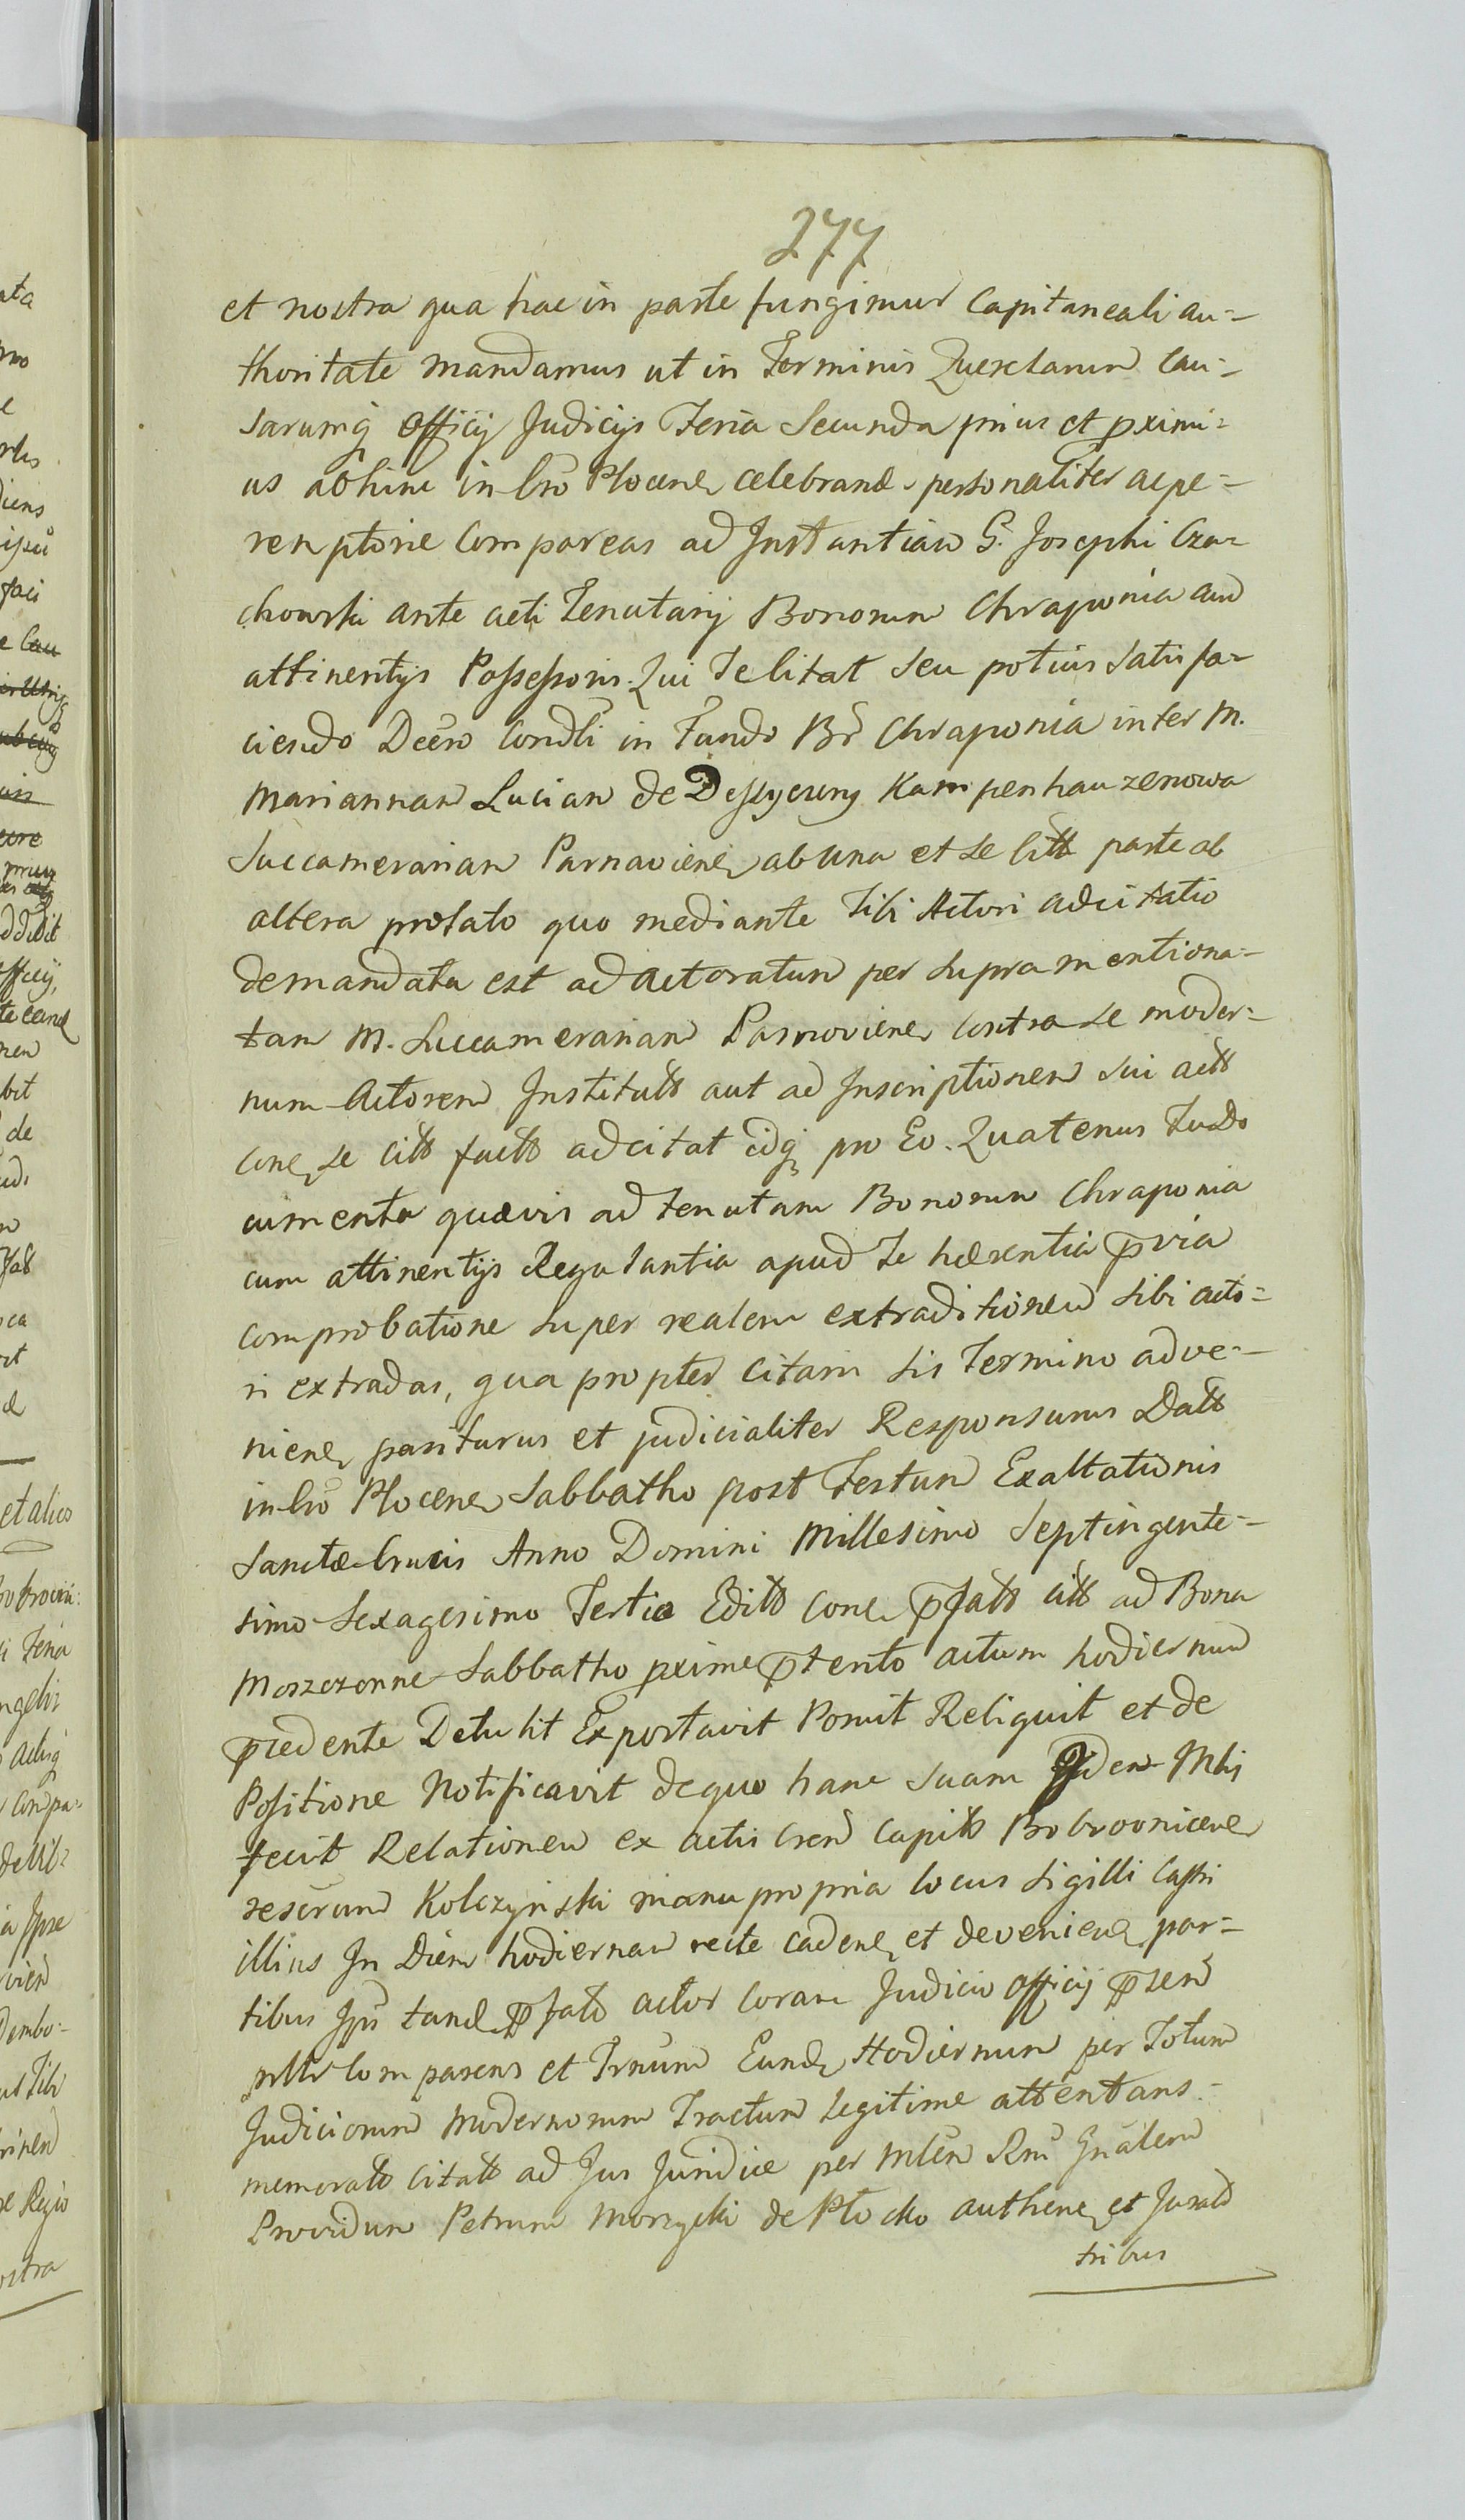 277
et nostra qua hac in parte fungimur Capitaneali au=
thoritate mandamus ut in Terminis Querelarum Cau=
sarumq̃ Officij Judicijs Feria Secunda prius et pximi=
us abhinc in Cro Plocene celebrand personaliter acpe=
remptorie Compareas ad Instantiam G. Josephi Cza=
chowski ante acti Tenutarij Bonorum Chraponia cum
attinentijs Possessoris. Qui Te Citat Seu potius Satisfa=
ciendo Decro Condli in Fundo Br Chraponia inter M.
Mariannam Lucian de Kampenhauzenowa
Succamerariam Parnaviene ab una et Te Citt parte ab
altera prolato quo mediante Tibi Actori adcitatio
demandata est ad actoratum per Supramentiona=
tam M. Succamerariam Parnoviene Contra Te moder=
num Actorem Institutt aut ad Inscriptionem Sui actt
Cone Te Citt factt adcitat idq̃ pro Eo. Quatenus Tu Do
cumenta quævis ad Tenutam Bonorum Chraponia
cum attinentijs Regulantia apud Te hærentia pvia
comprobatione Super realem extraditionem Sibi acto=
ri extradas, qua propter Citam Sis Termino adve=
niene pariturus et judicialiter Responsurus Datt
in Cro Plocene Sabbatho post Festum Exaltationis
Sanctæ Crucis Anno Domini Millesimo Septingente=
simo Sexagesimo Tertio Editt Cone pfatt Citt ad Bona
Moszczonne Sabbatho pxime ptento actum hodiernum
pcedente Detulit Exportavit Ponit Reliquit et de
Positione Notificavit de quo hanc Suam Idem Mlij
fecit Relationem ex actis Cren Capitt Bobrovnicene
rescrum Kolczynski manu propria locus Sigilli Castri
illius In Diem hodiernam recte cadene et deveniene par=
tibus Ipis tande pfatt actor Coram Judicio Officij psen
pnltr Comparens et Trnum Eunde Hodiernum per Totum
Judiciorum Modernorum Tractum Legitime attentans.
memoratt Citatt ad Jus Juridice per Mlem Rni Gnalem
Providum Petrum Morzycki de Plocko authene et Juratt
tribus